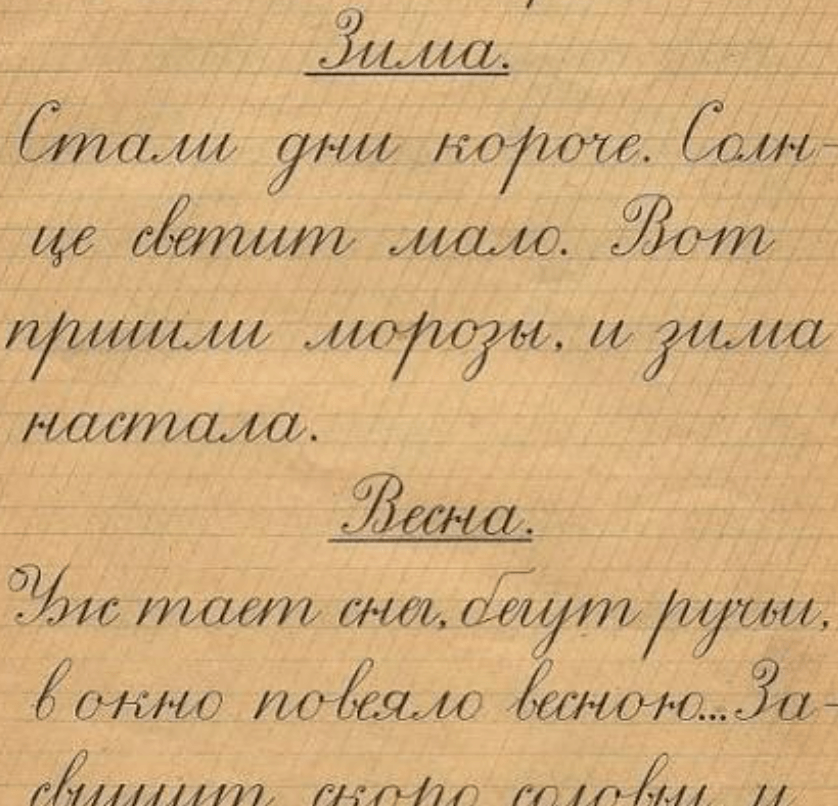 Зима.
Стали дни короче. Солн-
це светит мало. Вот
пришли морозы, и зима
настала.
Весна.
Уж тает снег, бегут ручьи,
в окно повеяло весною... За-
свищут скоро соловьи, и